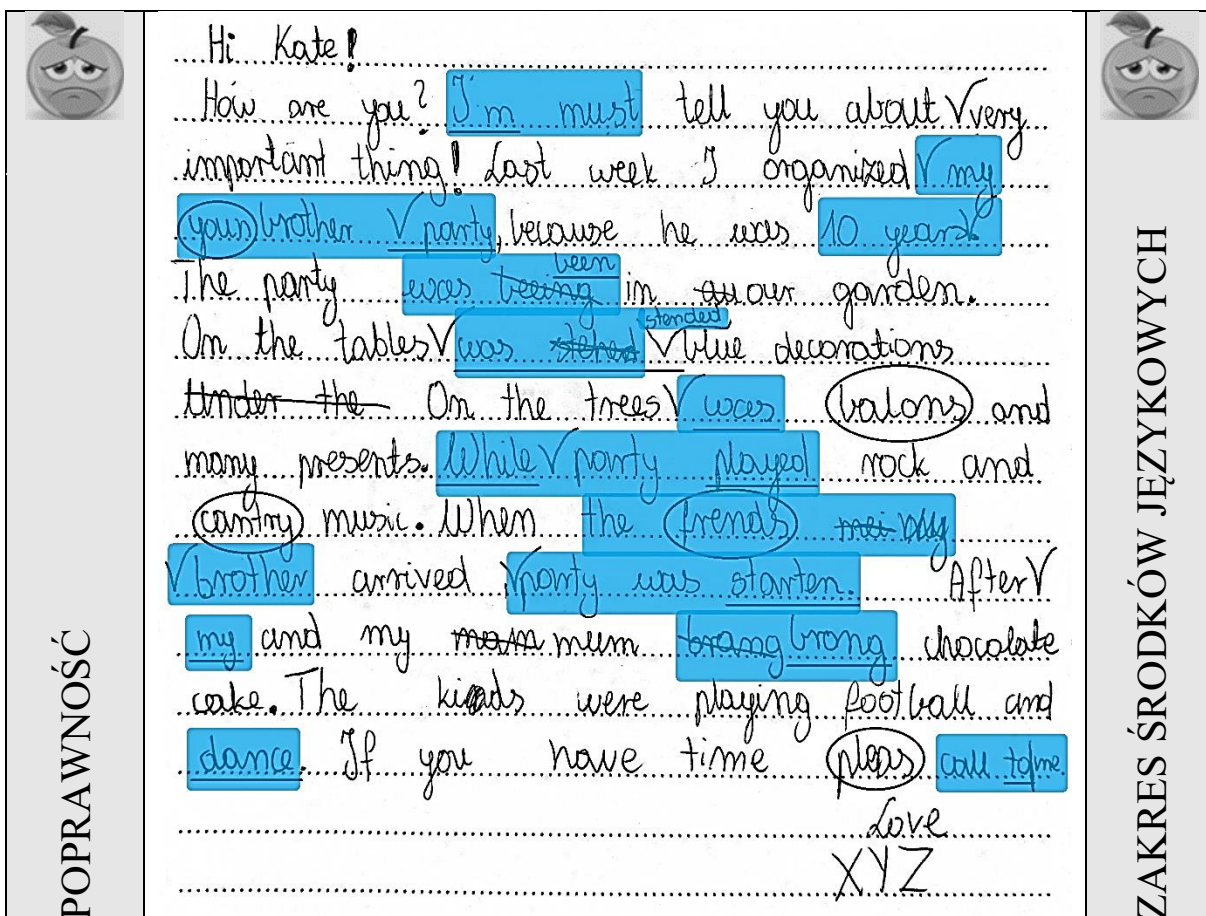 Hi Kate!
How are you? I'm must tell you about V very
important thing! Last week I organized V my
youn brother V party, because he was 10 years V
The party was beeing been in qu our garden.
On the tables V was stended V blue decorations
Under the On the trees V was balons and
many presents. While V party played rock and
cantry music. When the frends mei my
V brother arrived V party was starten. After V
my and my mam mum brang brong chocolate
cake. The kids were playing football and
dance. If you have time pleas call to me.
Love
XYZ
POPRAWNOŚĆ
ZAKRES ŚRODKÓW JĘZYKOWYCH